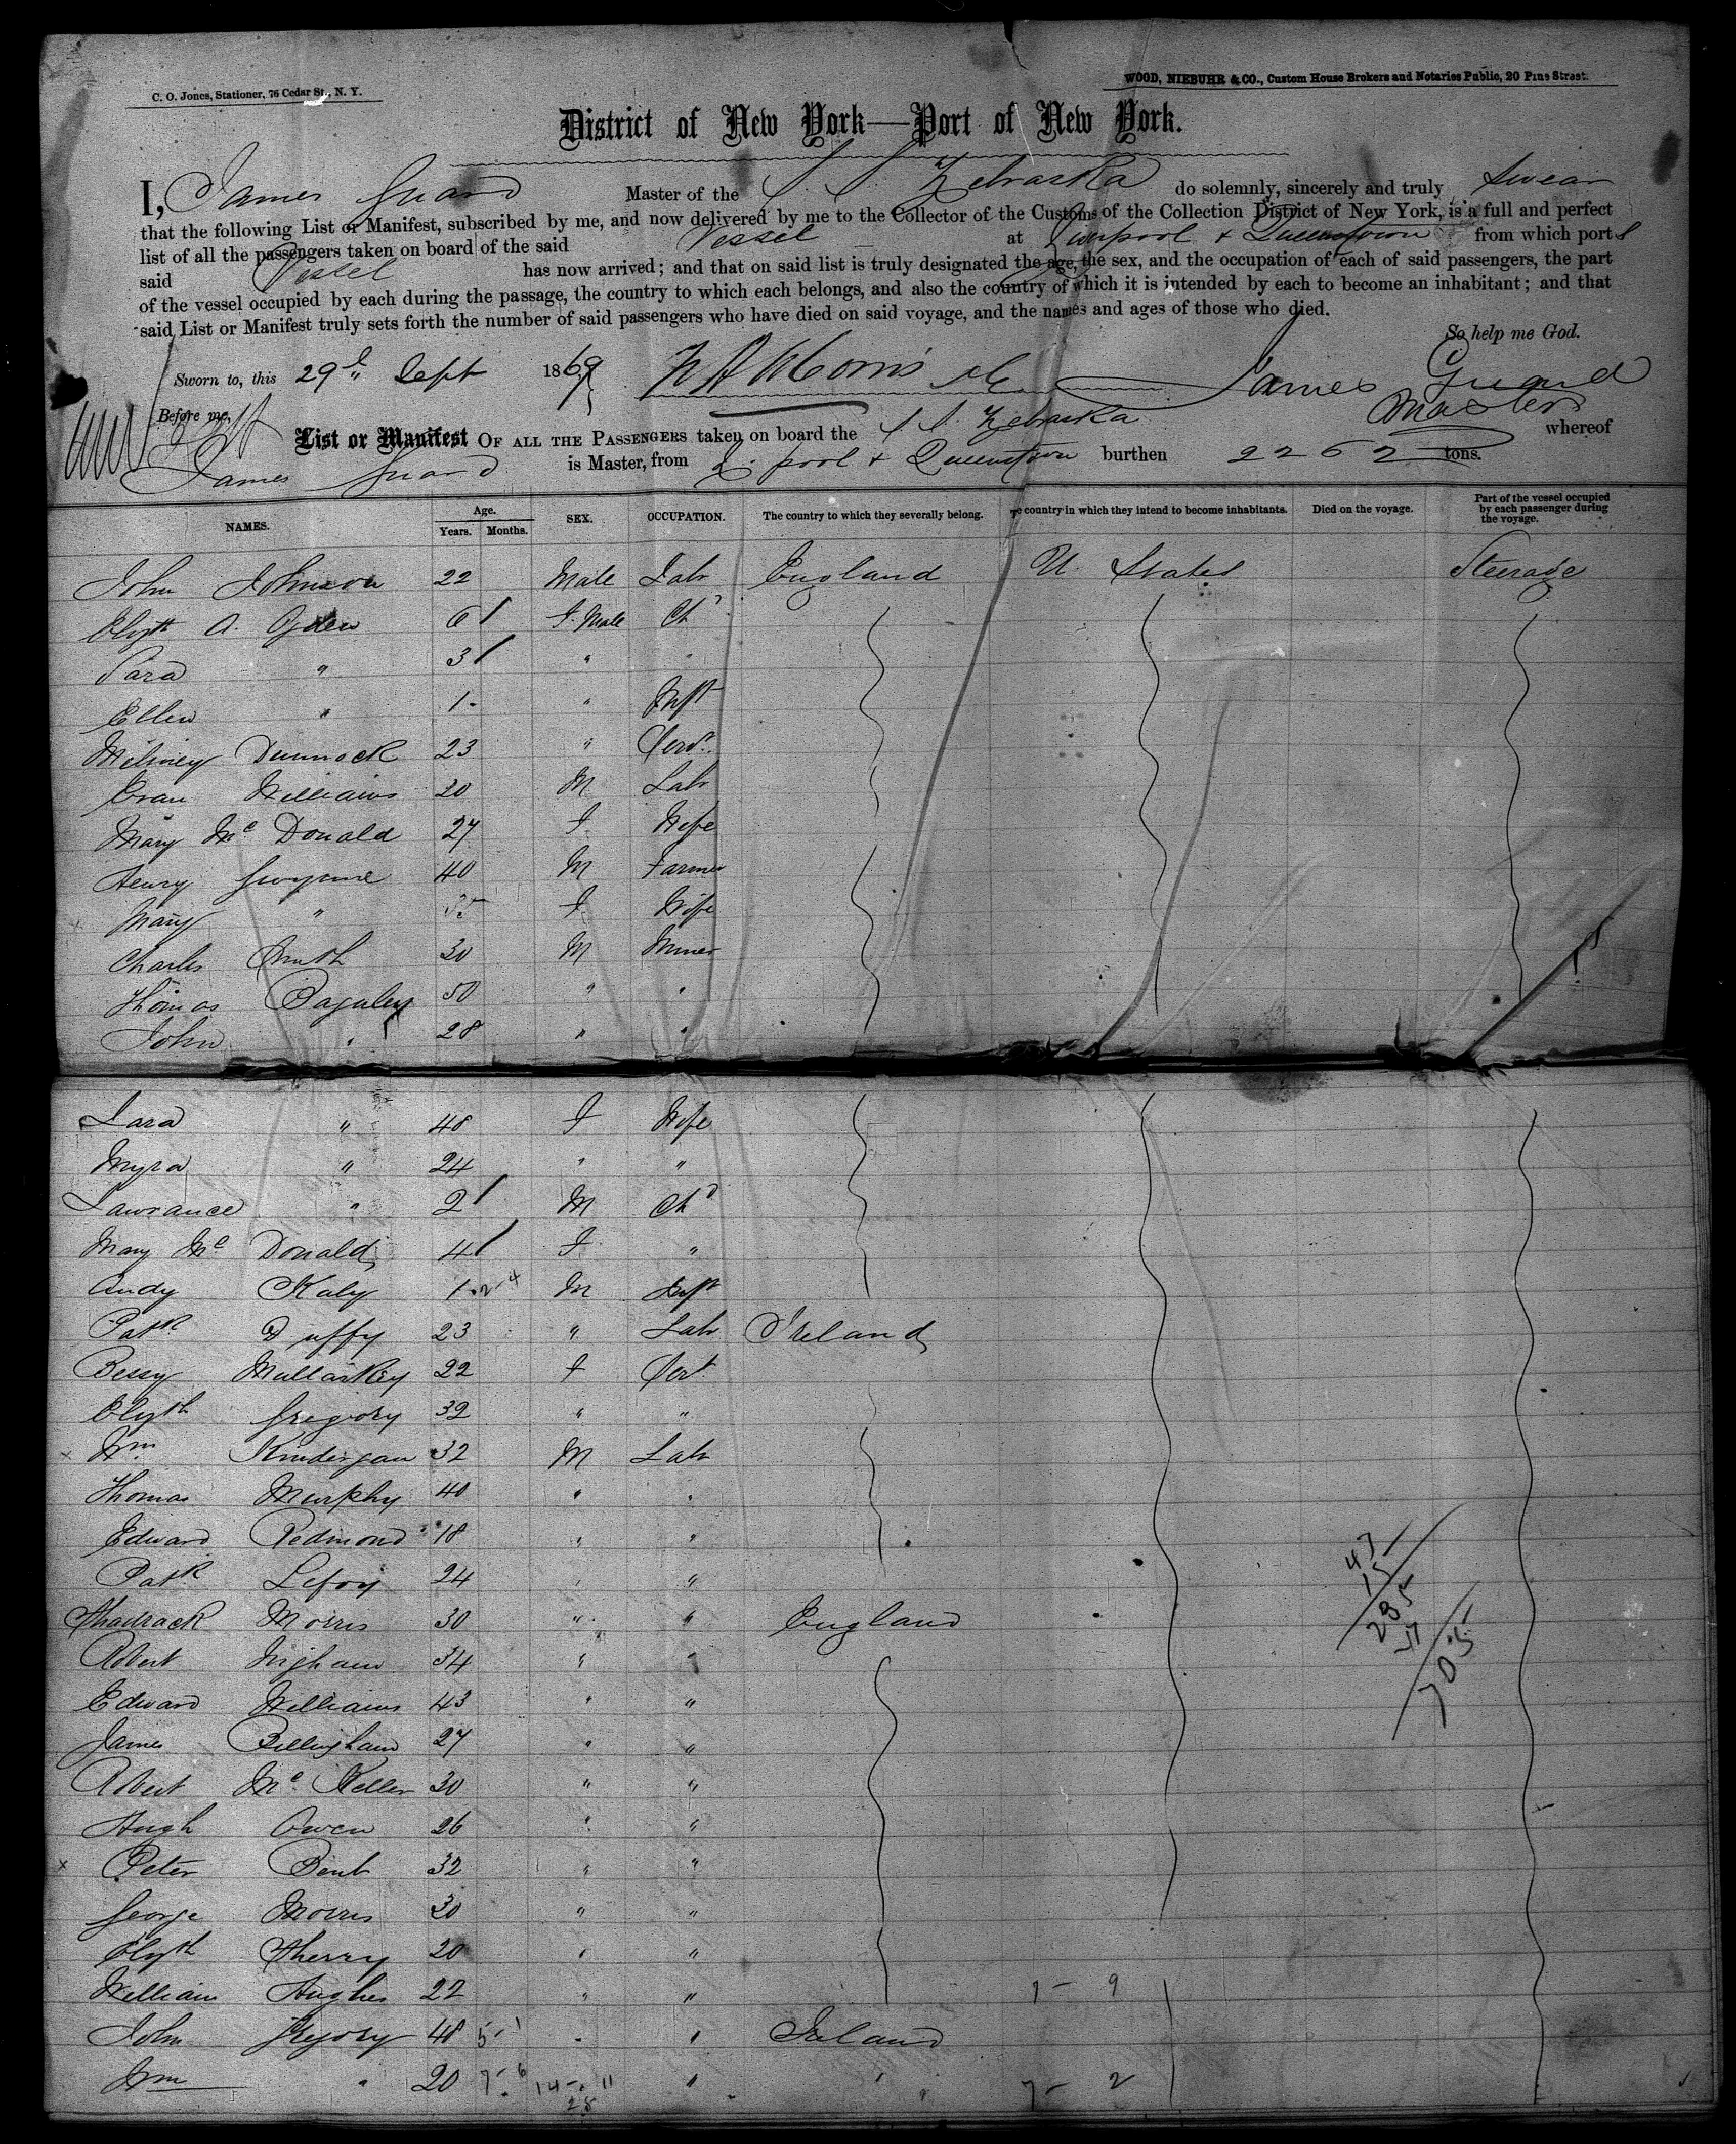 C. O. Jones, Stationer, 76 Cedar St., N. Y.
WOOD, NIEBUHR & CO., Custom House Brokers and Notaries Public, 20 Pine Street.
District of New York—Port of New York.
I, James Guard Master of the S. S. Nebraska do solemnly, sincerely and truly swear
that the following List or Manifest, subscribed by me, and now delivered by me to the Collector of the Customs of the Collection District of New York, is a full and perfect
list of all the passengers taken on board of the said Vessel at Liverpool & Queenstown from which port s
said Vessel has now arrived; and that on said list is truly designated the age, the sex, and the occupation of each of said passengers, the part
of the vessel occupied by each during the passage, the country to which each belongs, and also the country of which it is intended by each to become an inhabitant; and that
said List or Manifest truly sets forth the number of said passengers who have died on said voyage, and the names and ages of those who died.
So help me God.
Sworn to, this 29 Sept 1869 James Guard
Before me, Master
List or Manifest OF ALL THE PASSENGERS taken on board the S S. Nebraska whereof
James Guard is Master, from L. pool & Queenstown burthen 2262 tons.
NAMES. Age. Years. Months. SEX. OCCUPATION. The country to which they severally belong. The country in which they intend to become inhabitants. Died on the voyage. Part of the vessel occupied by each passenger during the voyage.
John Johnson 22 Male Labr England U. States Steerage
Elizth A. Ogden 6 F. Male Chd
Sara " 3 " "
Ellen " 1 " Inft
Dunnock 23 " Servt.
Evan Williams 30 M Labr
Mary Mc Donald 27 F Wife
Henry Gwynne 40 M Farmer
Mary " F Wife
Charles Smith 30 M Miner
Thomas Pagaley 50 " "
John " 28 " "
Sara " 48 F Wife
Myra " 24 " "
Lawrance " 2 M Chd
Mary Mc Donald 4 F "
Andy Kaly 1 M Inft
Patk Duffy 23 " Labr Ireland
Bessy Mullarkey 22 F Sert.
Elizth Gregory 32 " "
Wm Kindergan 32 M Labr
Thomas Murphy 40 " "
Edward Redmond 18 " "
Patk Lefoy 24 " "
Shadrack Morris 30 " " England
Robert Ingham 34 " "
Edward Williams 43 " "
James Bellingham 27 " "
Robert Mc Keller 30 " "
Hugh Owen 26 " "
Peter Bent 32 " "
George Morris 30 " "
Elizth Sherry 20 " "
William Hughes 22 " " 7 - 9
John Gregory 48 5 - 1 " " Ireland
Wm " 20 7 - 6 14 - 11 " " 7 - 2
28
47
15
235
705